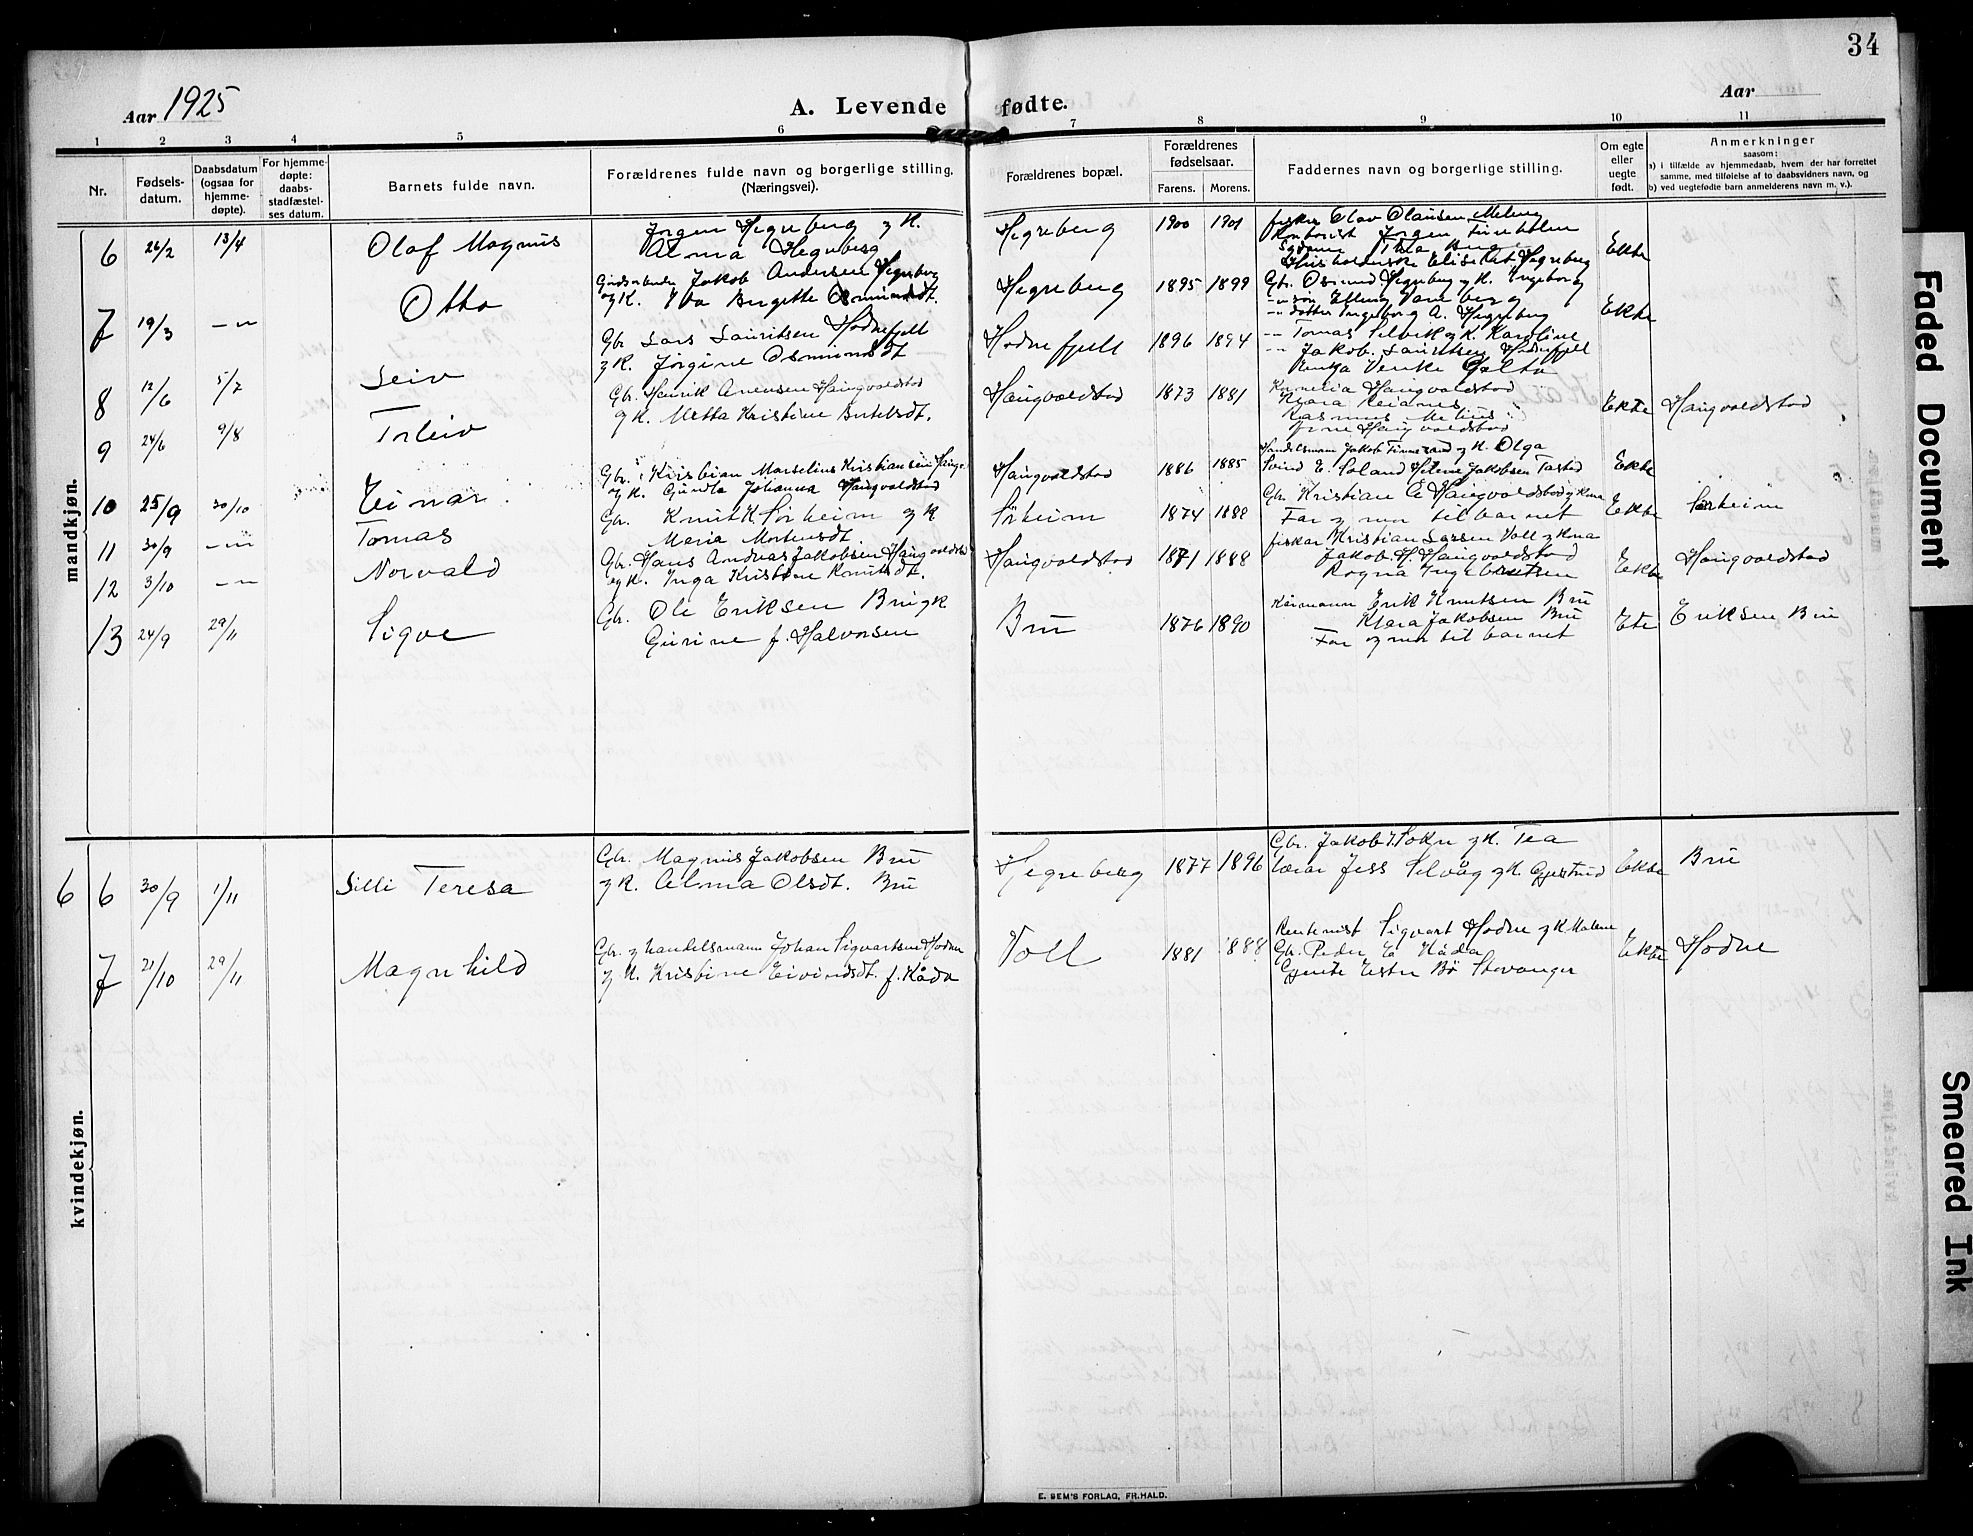 34
Aar 1925
A. Levende fødte.
Aar
1 2 3 4 5 6 7 8 9 10 11
Nr.
Fødsels-
datum.
Daabsdatum
(ogsaa for
hjemme-
døpte).
For hjemme-
døpte:
daabs-
stadfæstel-
ses datum.
Barnets fulde navn.
Forældrenes fulde navn og borgerlige stilling.
(Næringsvei).
Forældrenes bopæl.
Forældrenes
fødselsaar.
Farens. Morens.
Faddernes navn og borgerlige stilling.
Om egte
eller
uegte
født.
Anmerkninger
saasom:
a) i tilfælde av hjemmedaab, hvem der har forrettet
samme, med tilføielse af to daabsvidners navn, og
b) ved uegtefødte barn anmelderens navn m. v.).
mandkjøn.
6 26/2 13/4 Olaf Magnus
Jørgen Hegreberg g K.
Alma Hegreberg
Hegreberg 1900 1901
fisker Olav Olausen Meling
Kontorist Jørgen
Elisabet Hegreberg
Ekte
7 19/3 -"- Otto
Gardarbeider Jakob Andersen Hegreberg
og K. Brigitte Osmundsdt.
Hegreberg 1895 1899
Gbr. Osmund Hegreberg g K. Ingeborg
-"- søn Elling
-"- dotter Ingeborg A. Hegreberg
Ekte
8 12/6 5/7 Leiv
Gbr Lars Lauritsen Hodnefjell
g K. Jørgine Osmundsdt
Hodnefjell 1896 1894
-"- Tomas Selvik g K. Karoline
-"- Jakob Lauritsen Hodnefjell
9 24/6 9/8 Torleiv
Gbr. Henrik Arnensen Haugvaldstad
g K. Metta Kristine
Haugvaldstad 1873 1881
Kornelia Haugvaldstad
Klara Reianes
Rasmus
Haugvaldstad
Ekte Haugvaldstad
10 25/9 30/10 Einar
Gbr. Kristian Marselius Kristiansen Hauge
og K. Gunda Johanna Haugvaldstad
Haugvaldstad 1886 1885
Handelsmann Jakob Finnesand g K. Olga
Svend E. Soland Helene Jakobsen Tasted
Ekte
11 30/9 -"- Tomas
Gbr. Knut K Sørheim g K
Maria Mortensdt.
Sørheim 1874 1882
Gbr Kristian E Haugvaldstad g Kona
Far g mor til barnet
Ekte Sørheim
12 3/10 -"- Norvald
Gbr. Hans Andreas Jakobsen Haugvaldstad
og K. Inga Kristine Knutsdt.
Haugvaldstad 1871 1888
fiskar Kristian Larsen Voll g kona
Jakob H. Haugvaldstad
Ragna Ingebretsen
Ekte Haugvaldstad
13 24/9 29/11 Sigve
Gbr. Ole Eriksen Bru g K
Gurine f. Halvorsen
Bru 1876 1890
Kaimann Erik Knutsen Bru
Klara Jakobsen Bru
Far g mor til barnet
Ete Eriksen Bru
kvindekjøn.
6 6 30/9 1/11 Silli Teresa
Gbr. Magnus Jakobsen Bru
g K. Alma Olsdt. Bru
Hegreberg 1877 1896
Gbr. Jakob T. Sokn g K. Tea
Lærar Jess Selvåg g K. Gjertrud
Ekte Bru
7 21/10 29/11 Magnhild
Gbr. g handelsmann Johan Sigvartsen Hodne
g K. Kristine Eivindsdt. f. Kåda
Voll 1881 1888
Rentenist Sigvart Hodne g K Malene
Gbr. Peder E Kåda
Gjente Ester Bø Stavanger
Ekte Hodne
E. SEM'S FORLAG, FR.HALD.
Faded Document
Smeared Ink